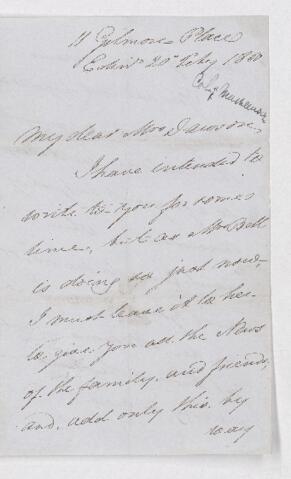 11 Gilmore Place
Edinr 20th Feby 1860
My dear Mrs Dawson,
I have intended to
write to you for some
time, but as Mrs Bell
is doing so just now,
I must leave it to her
to give you all the News
of the family, and friends,
and add only this by
way